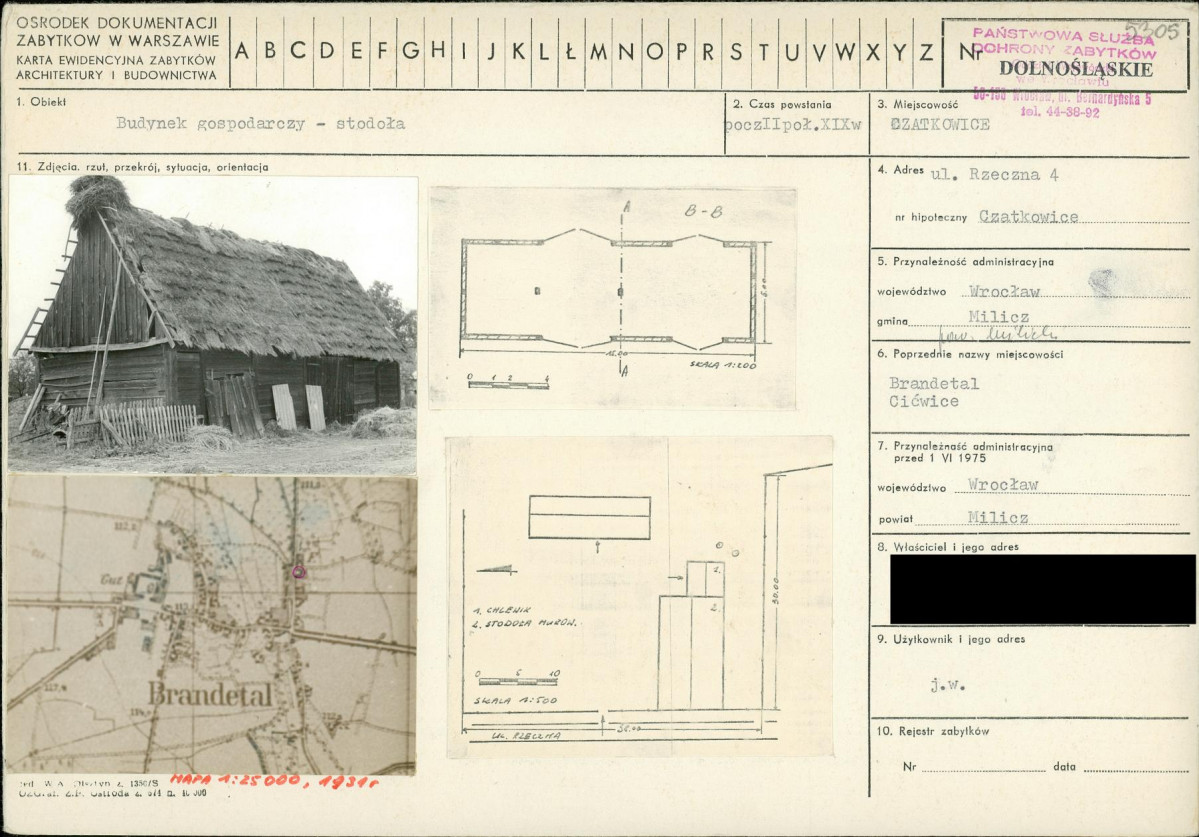 OSRODEK DOKUMENTACJI
ZABYTKOW W WARSZAWIE
KARTA EWIDENCYJNA ZABYTKÓW
ARCHITEKTURY I BUDOWNICTWA
A B C D E F G H I J K L Ł M N O P R S T U V W X Y Z
Nr
5305
PAŃSTWOWA SŁUŻBA
OCHRONY ZABYTKÓW
DOLNOŚLĄSKIE
we Wrocławiu
tel. 44-38-92
1. Obiekt
Budynek gospodarczy - stodoła
2. Czas powstania
poczIIpoł.XIXw
3. Miejscowość
CZATKOWICE
11. Zdjęcia. rzut, przekrój, sytuacja, orientacja
4. Adres ul. Rzeczna 4
nr hipoteczny Czatkowice
5. Przynależność administracyjna
województwo Wrocław
gmina Milicz
6. Poprzednie nazwy miejscowości
Brandetal
Cićwice
7. Przynależność administracyjna
przed 1 VI 1975
województwo Wrocław
powiat Milicz
8. Właściciel i jego adres
9. Użytkownik i jego adres
j.w.
10. Rejestr zabytków
Nr data
A
B-B
6.00
15.00
A
SKALA 1:200
0 1 2 4
1.
2.
1. CHLEWIK
2. STODOŁA MUROW.
30.00
0 5 10
SKALA 1:500
35.00
UL. RZECZNA
Gut
Brandetal
MAPA 1:25000, 1931r